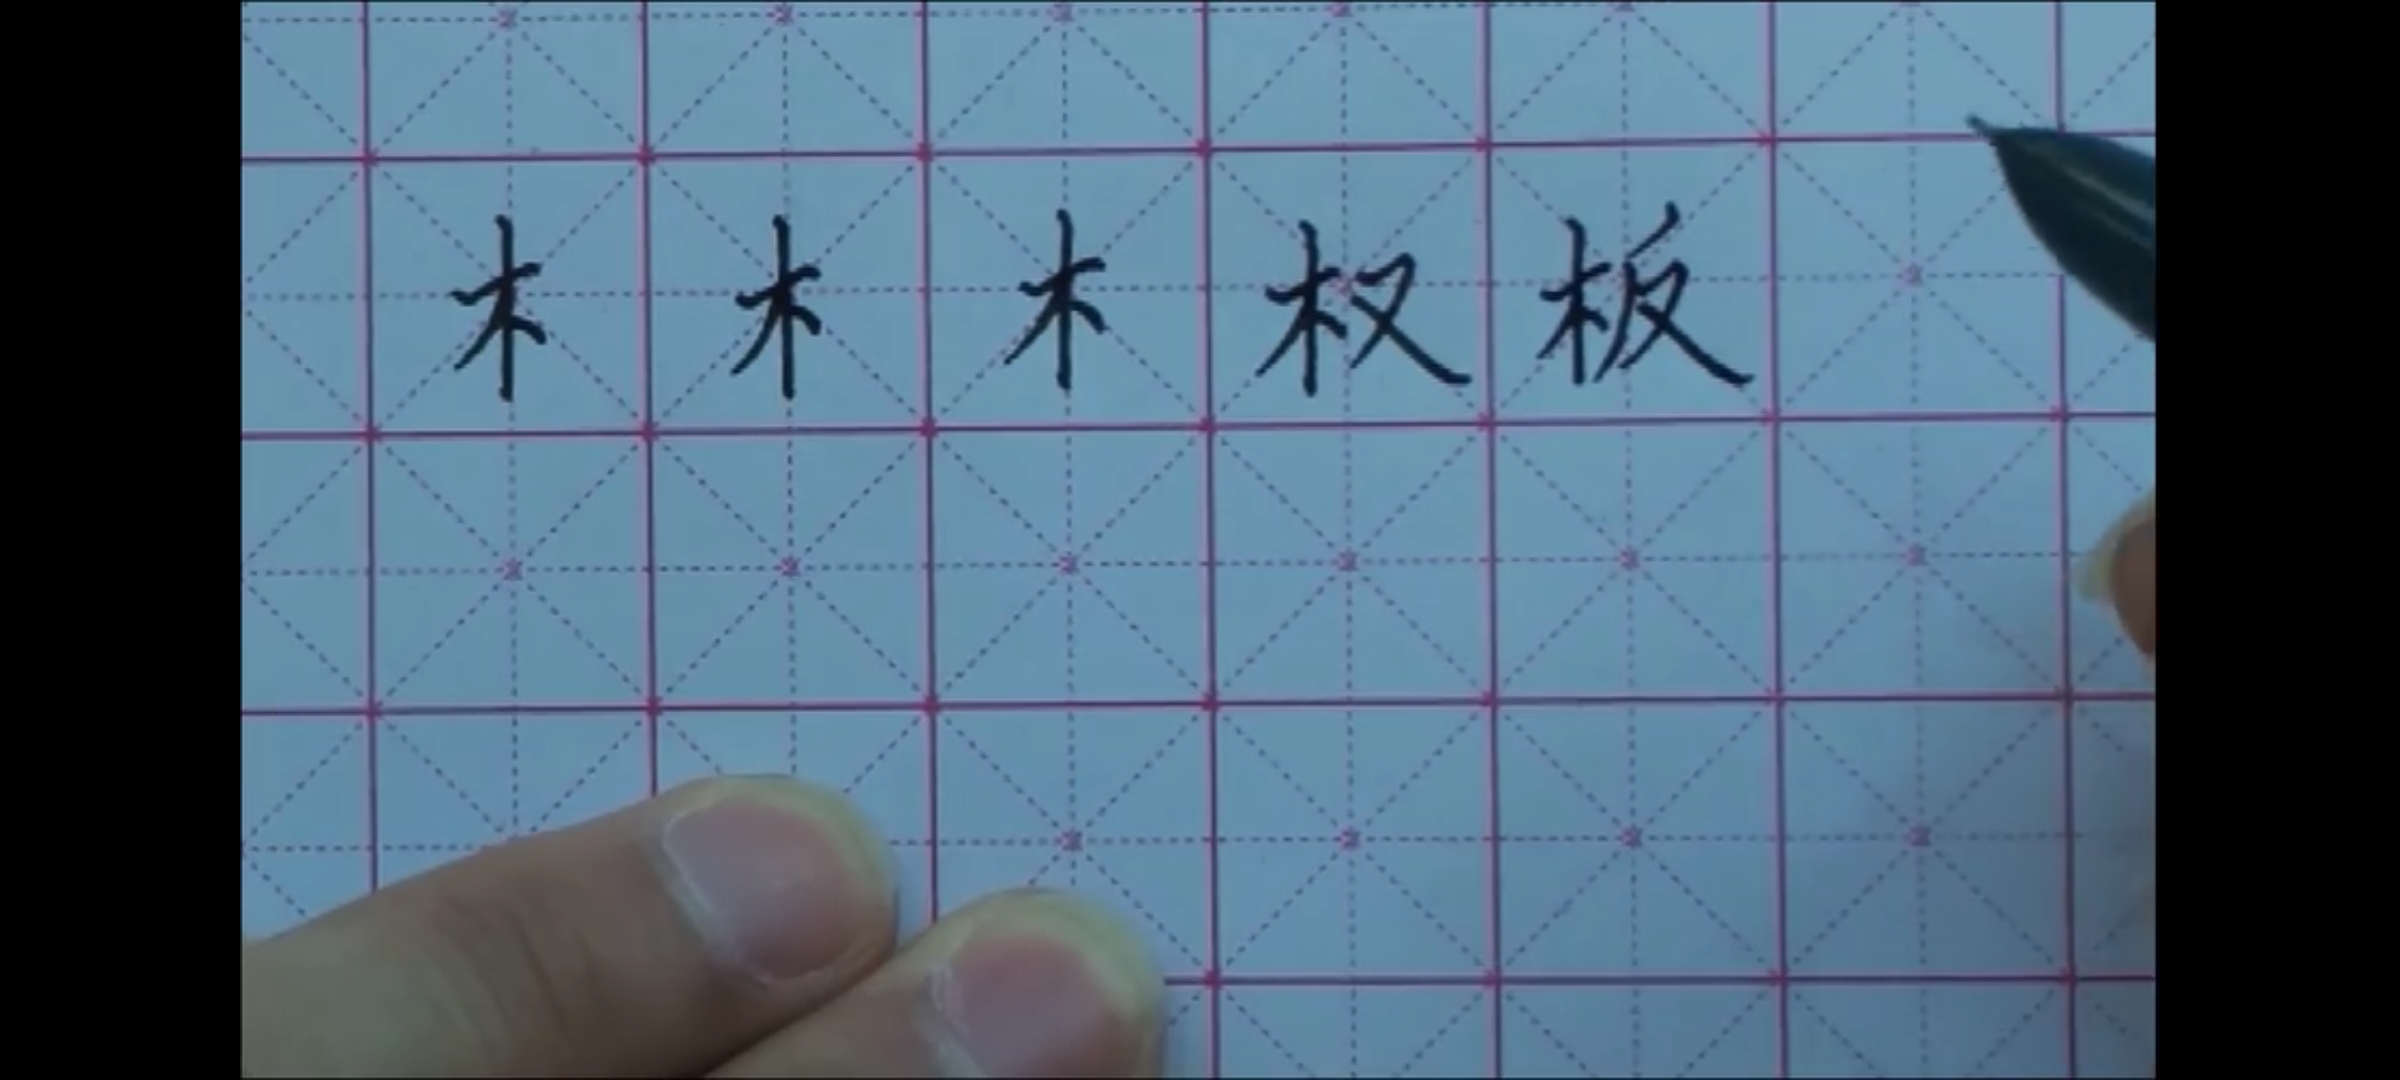 木 木 木 权 板